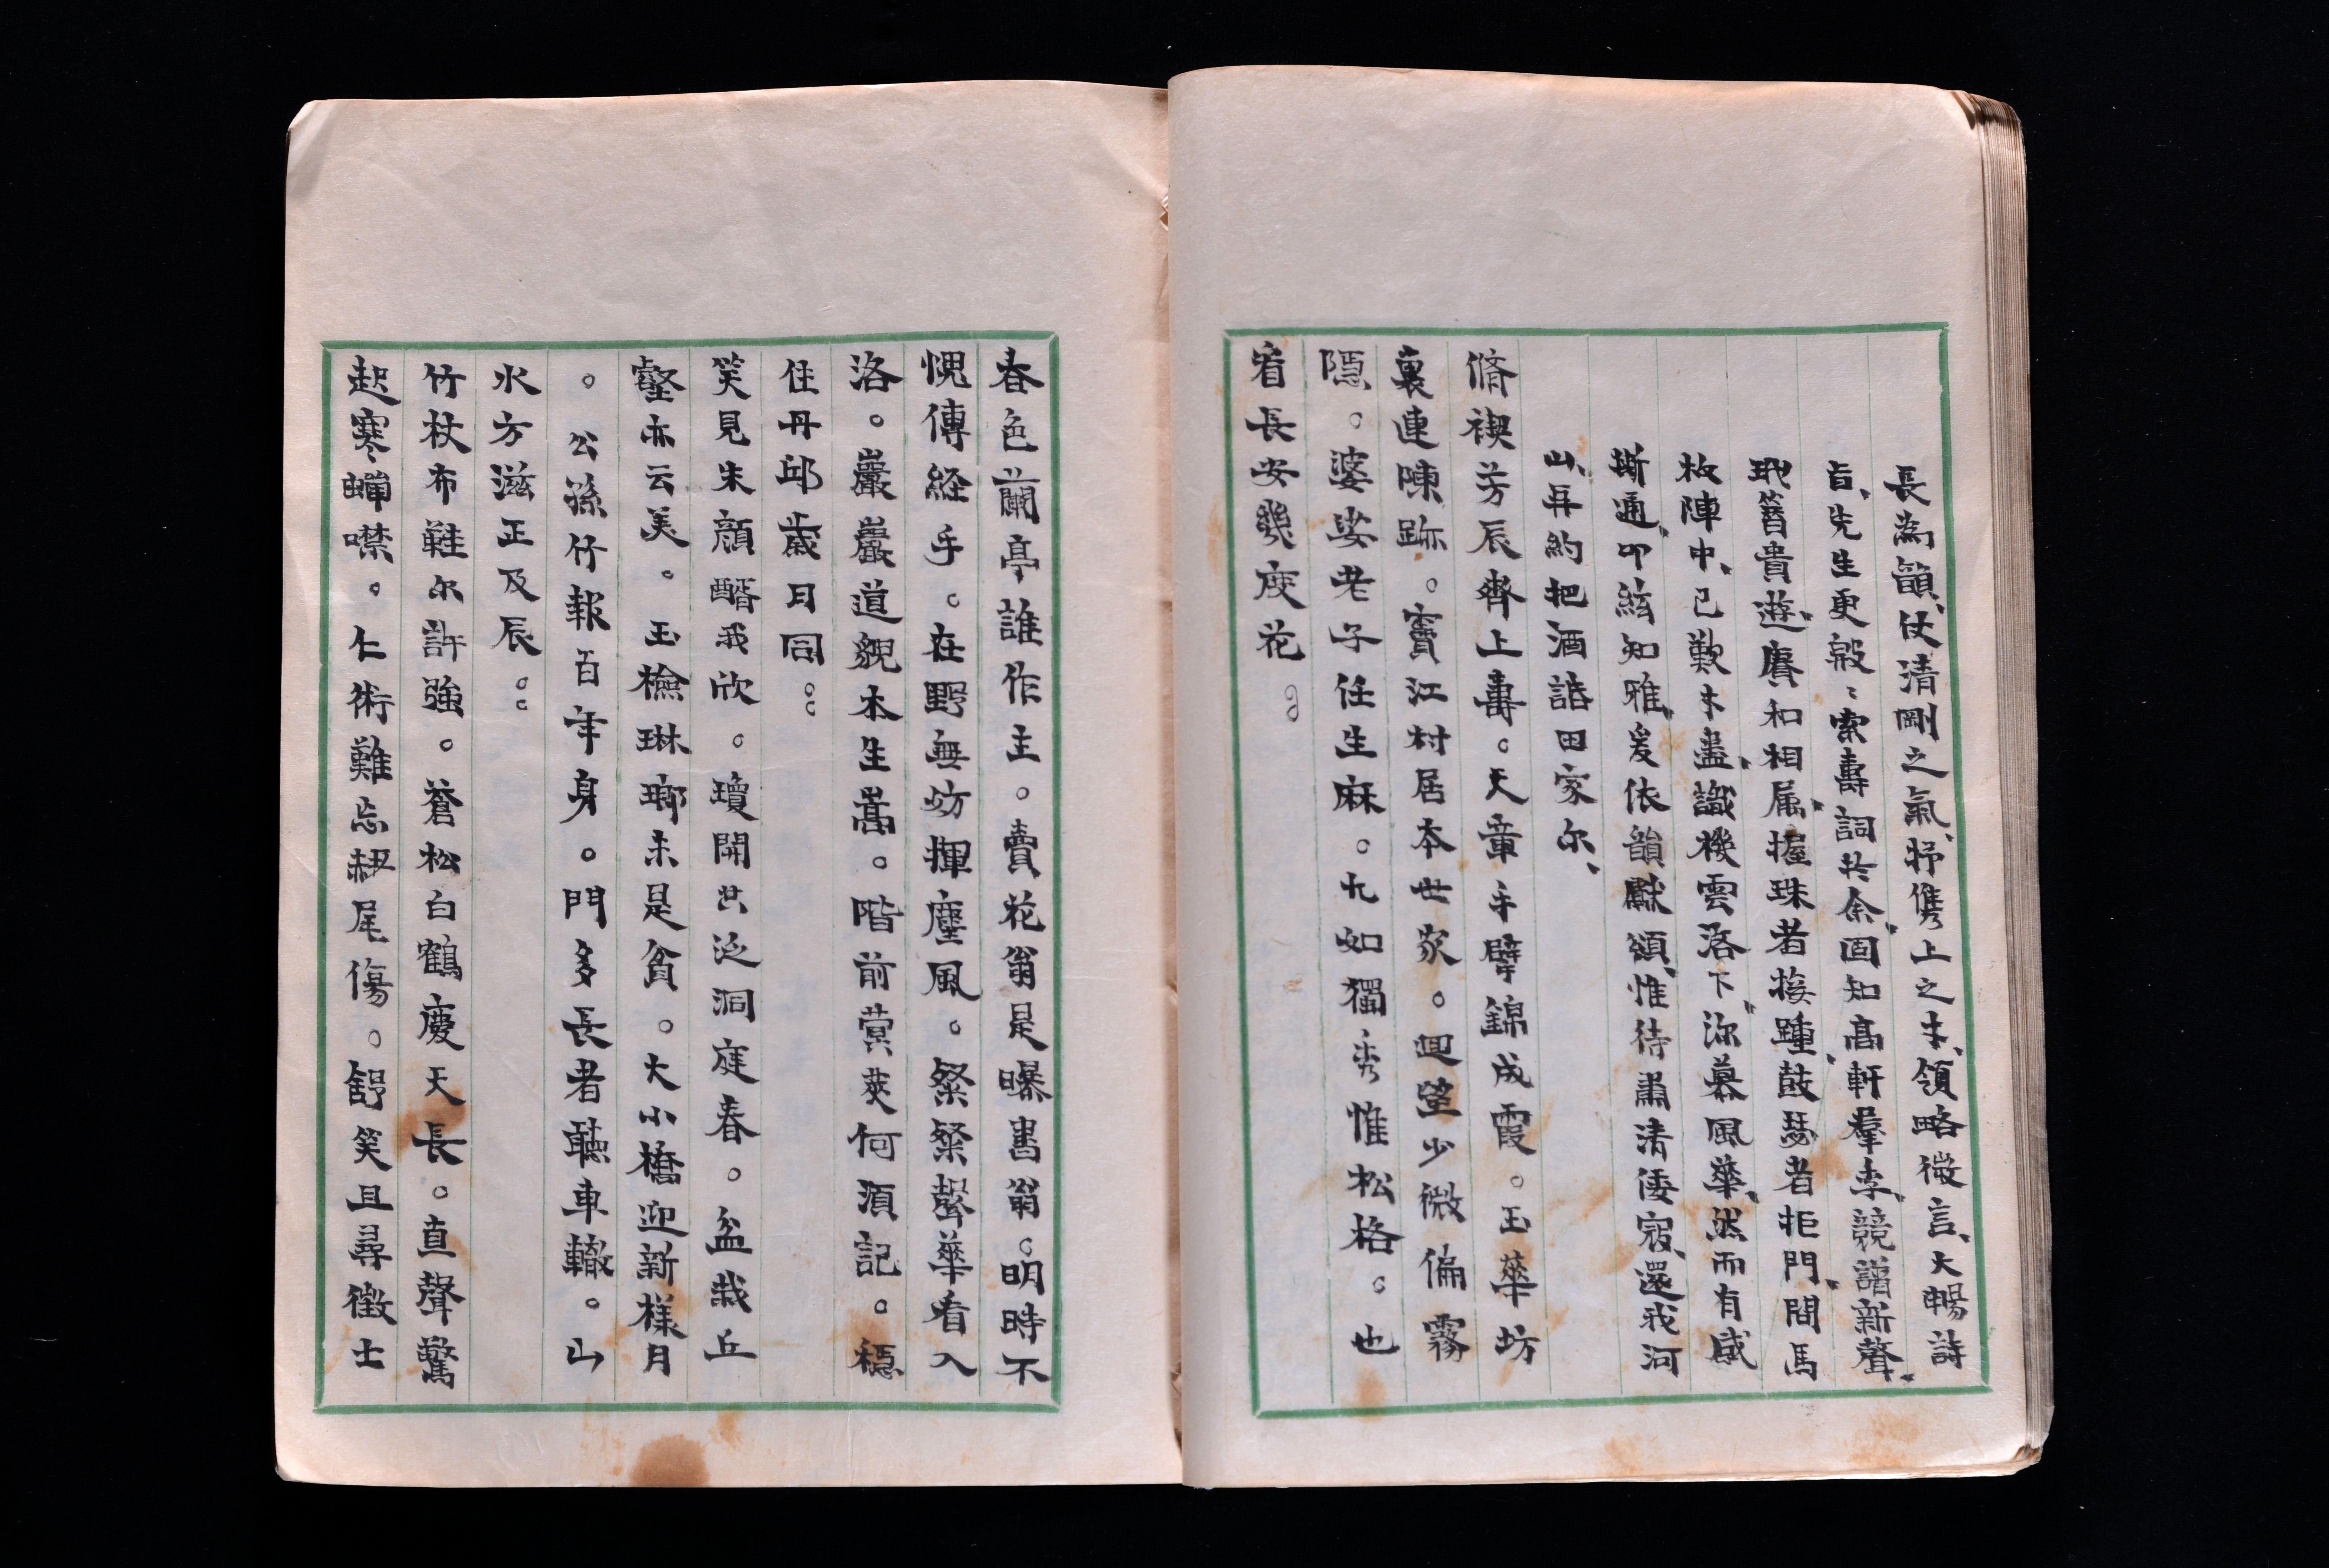 長為韻、仗清剛之氣、抒儁上之才、領略微言、大暢詩
旨、先生更殷〻索壽詞於余、固知高軒羣季、競譜新聲、
玳簪貴遊、賡和相属、握珠者接踵、鼓瑟者拒門、間馬
枚陣中、已歎才盡、識機雲洛下、沵慕風華、然而有感
斯通、叩絃知雅、爰依韻緜頌、惟待肅清倭寇、還我河
山、再約把酒話田家尔、
脩禊芳辰齊上壽。天章手擘錦成霞。玉華坊
裏連陳跡。賣江村居本世家。迴望少微偏霧
隱。婆娑老子任生麻。九如獨秀惟松格。也
看長安幾度花。。
春色蘭亭誰作主。賣花翁是曝書翁。明時不
愧傳経手。在野無妨揮麈風。粲粲聲華看入
洛。巖巖道貌本生嵩。階前蓂莢何須記。穩
住丹邱歲月同。。
笑見朱顔醑我欣。瓊開共泛洞庭春。盆栽丘
壑亦云美。玉檢琳瑯未是貧。大小橋迎新樣月
。公孫竹報百年身。門多長者聽車轍。山
水方滋正及辰。。
竹杖布鞋尔許強。蒼松白鶴慶天長。直聲驚
起寒蟬噤。仁術難忘赬尾傷。舒笑且尋徵士